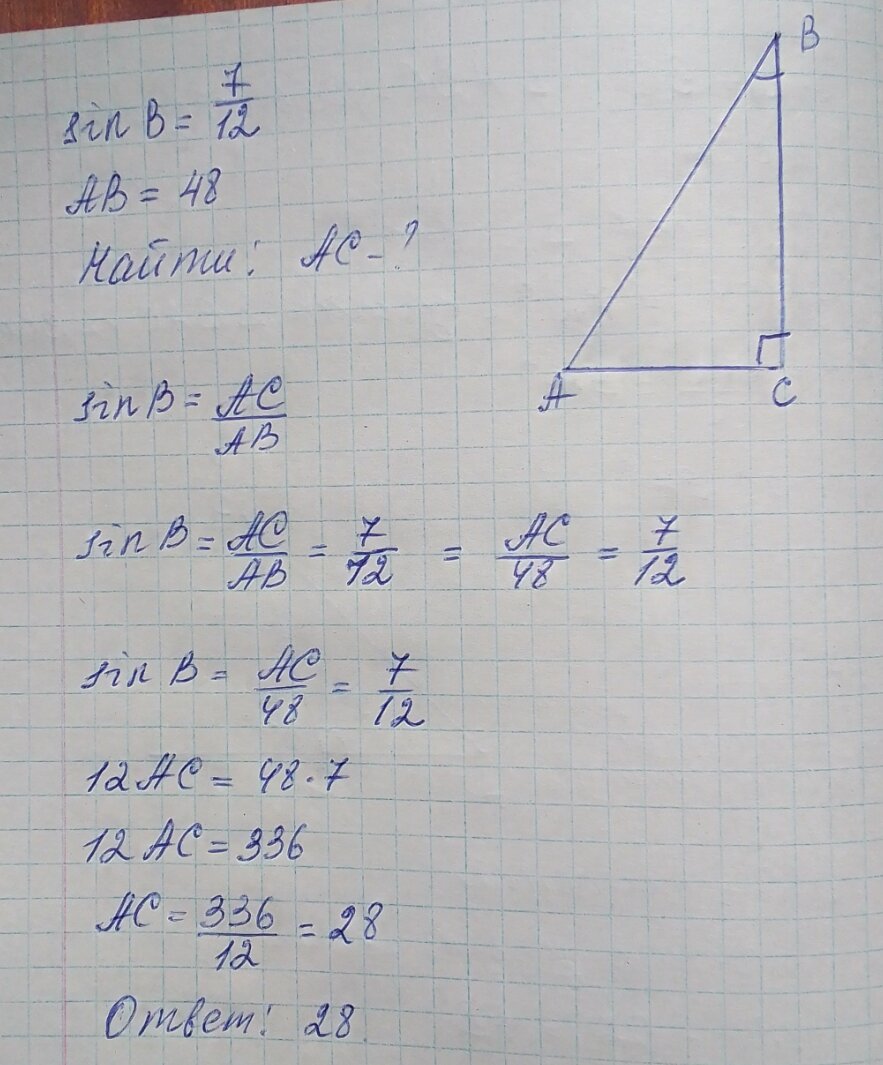 sin B = 7/12
AB = 48
Найти: AC - ?
B
A
C
sin B = AC/AB
sin B = AC/AB = 7/12 = AC/48 = 7/12
sin B = AC/48 = 7/12
12 AC = 48 · 7
12 AC = 336
AC = 336/12 = 28
Ответ: 28